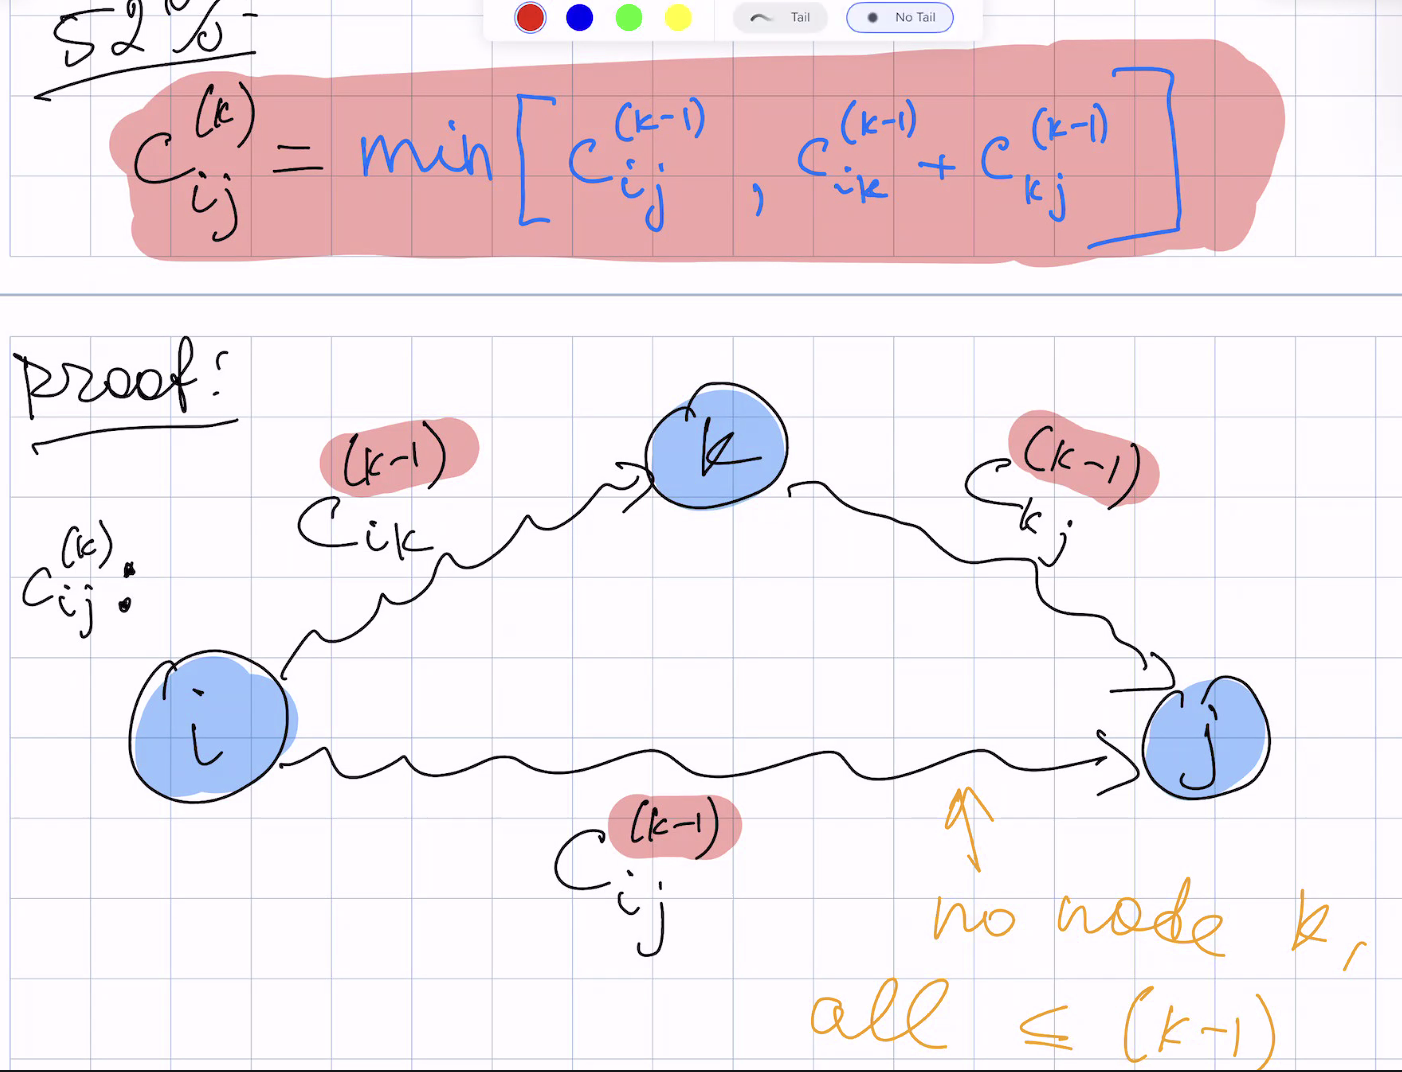 Tail No Tail
52%
C_{ij}^{(k)} = min [ C_{ij}^{(k-1)} , C_{ik}^{(k-1)} + C_{kj}^{(k-1)} ]
proof:
k
C_{ik}^{(k-1)}
C_{kj}^{(k-1)}
C_{ij}^{(k)} :
i
j
C_{ij}^{(k-1)}
no node k,
all ≤ (k-1)